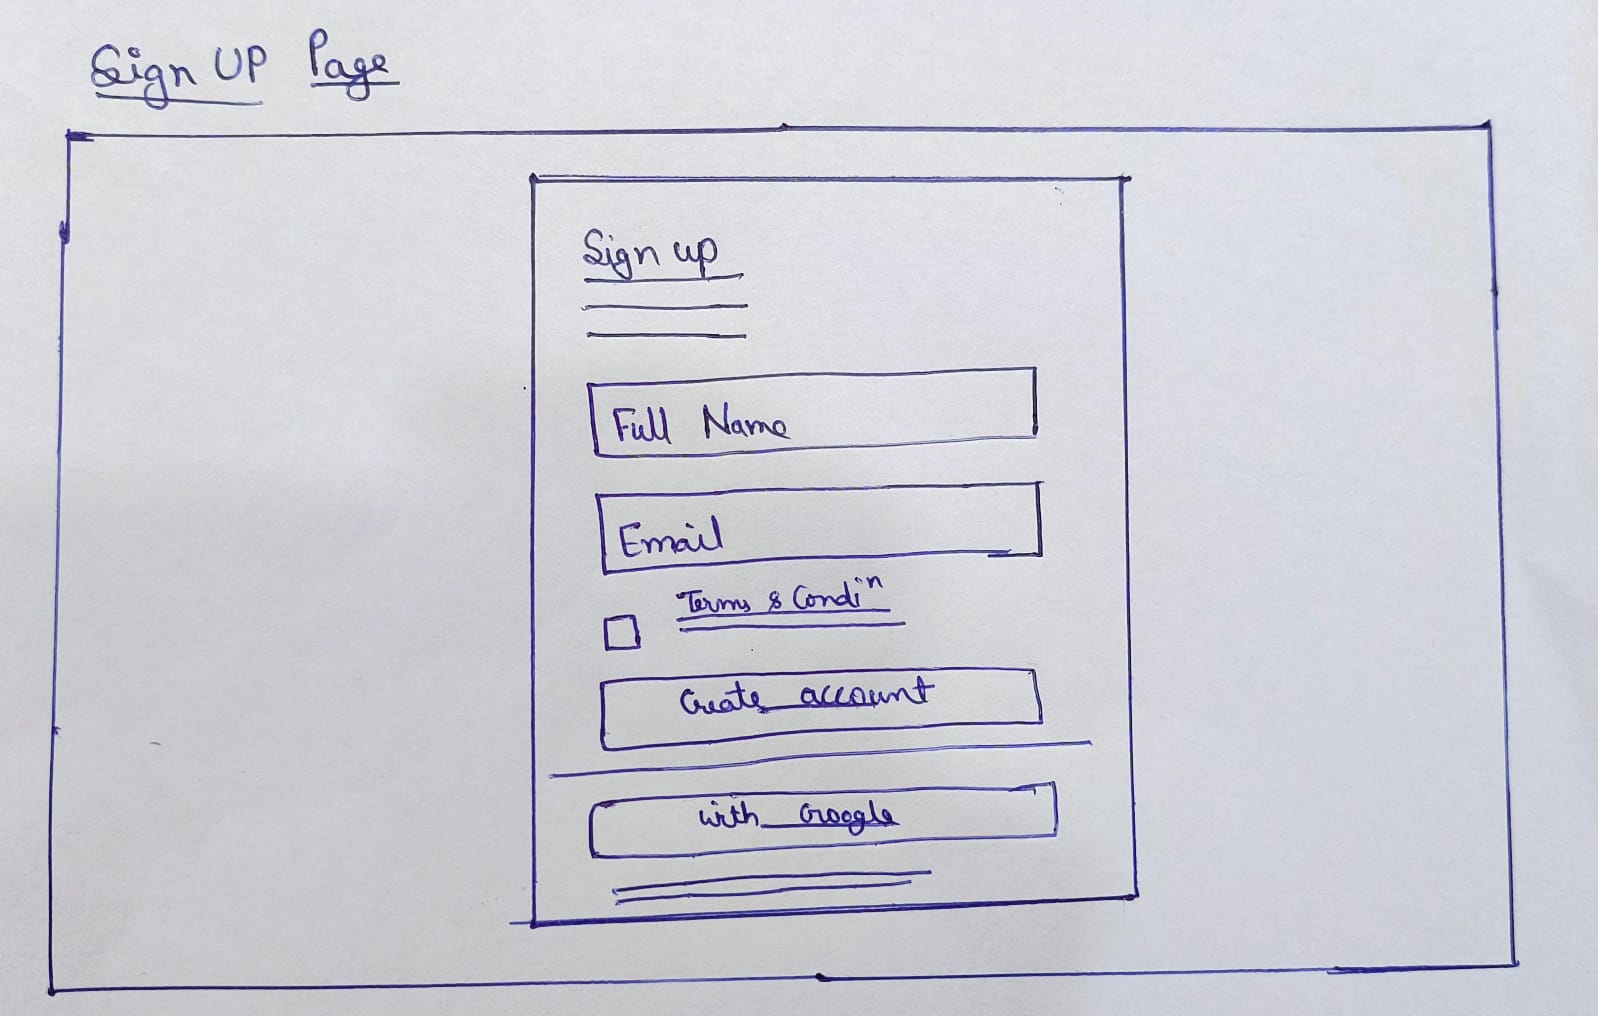 Sign UP Page
Sign up
Full Name
Email
Terms & Condiⁿ
Create account
with Google